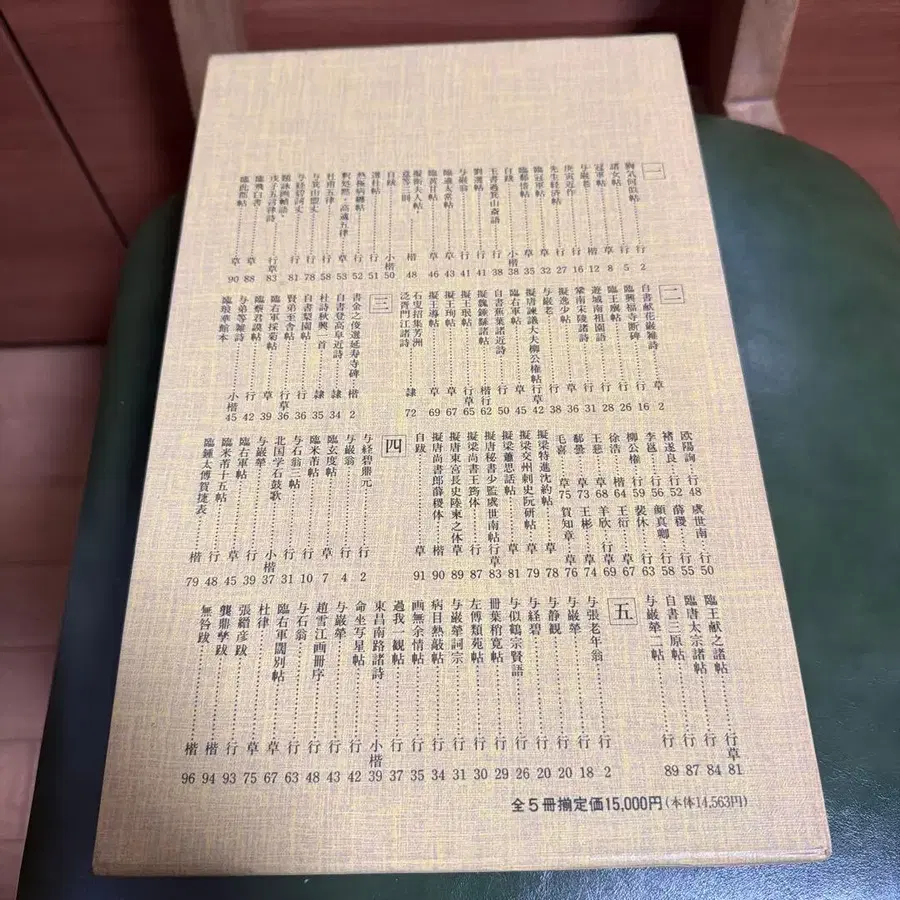 一
胸気何似帖……行 2
諸女帖……行 5
冠軍帖……草 8
与巌老……楷 12
庚寅近作……行 16
先生経済帖……行 27
臨冠軍帖……草 32
臨郗愔帖……草 35
自跋……小楷 38
王書過登山斎語……行 38
与巌翁……行 41
草 43
臨黄甘帖……草 46
擬衛夫人帖
楷 48
自跋……小楷 50
選杜帖……行 51
熱極病纏帖……行 52
釈処黙・高適五律……草 53
杜甫五律……行 58
与箕山盟丈……行 78
与経碧詞丈……行 81
題詠画幀語
戊子五言律詩……行草 83
臨飛白書……草 88
草 90
二
自書献花巌雑詩……草 2
臨興福寺断碑……行 16
臨王廙帖……行 26
遊城南祖園語……行 28
鞏南宋陵諸詩……行 31
擬逸少帖……草 36
与巌老……行 38
擬唐諫議大夫柳公権帖……行草 42
臨右軍帖……草 45
自書蕉葉諸近詩……行 50
擬魏鍾繇諸帖……楷行 62
擬王珉帖……行草 65
擬王珣帖……草 67
擬王導帖……草 69
石叟招集芳洲
泛斉門江諸詩……隷 72
三
書金之俊選延寿寺碑……楷 2
自書登高阜近詩……隷 34
杜詩秋興一首……隷 35
自書梨園帖……行 36
賢弟至舎帖……行草 36
臨右軍採菊帖……草 39
臨蔡君謨帖……行 42
与弟等雑詩
臨瑯華館本……小楷 45
欧陽詢……行 48
虞世南……行 50
褚遂良……行 52
薛稷……行 55
李邕……行 56
顔真卿……行 58
柳公権……行 59
裴休……行 63
徐浩……楷 64
王衍……草 67
王慈……草 68
羊欣……行草 69
郗曇……草 73
王彬……草 74
毛喜……草 75
賀知章……草 76
擬梁特進沈約帖……草 78
擬梁交州刺史阮研帖……草 79
擬梁蕭思話帖……草 81
擬唐秘書少監虞世南帖……行草 83
擬梁尚書王筠体……行 87
擬唐東宮長史陸柬之体……草 89
擬唐尚書郎薛稷体……楷 90
自跋……草 91
四
与経碧鼎元……行 2
与巌翁……行 4
臨玄度帖……草 7
臨米芾帖……行 10
与石翁三帖……行 31
北国学石鼓歌……小楷 37
与巌犖……行 39
臨右軍帖……草 45
臨米芾十五帖……行 48
臨鍾太傅賀捷表……楷 79
臨王献之諸帖……行草 81
臨唐太宗諸帖……行 84
自書三原帖……行 87
与巌犖一帖……行 89
五
与張老年翁……行 2
与巌犖……行 18
与静観……行 20
与経碧……行 20
与似鶴宗賢語……行 26
冊葉稍寛帖……行 29
左傅類苑帖……行 30
与巌犖詞宗……行 31
病目熱敲帖……行 34
画無余情帖……行 35
過我一観帖……行 37
東昌南路諸詩……小楷 39
命坐写星帖……行 42
与巌犖……行 43
趙雪江画冊序……行 48
与石翁……行 63
臨右軍闊別帖……草 67
杜律……草 75
張縉彦跋……行 93
龔鼎孳跋……楷 94
無咎跋……楷 96
全5冊揃定価15,000円(本体14,563円)